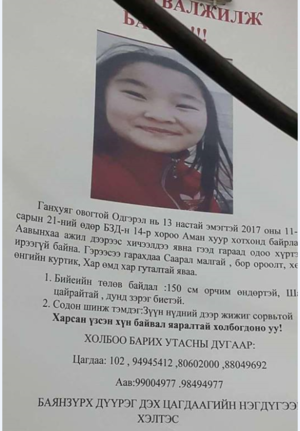 ВАЛЖИЛЖ
!!!
Ганхуяг овогтой Одгэрэл нь 13 настай эмэгтэй 2017 оны 11-
сарын 21-ний өдөр БЗД-н 14-р хороо Аман хуур хотхонд байрла
Аавынхаа ажил дээрээс хичээлдээ явна гээд гараад одоо хүртэ
ирээгүй байна. Гэрээсээ гарахдаа Саарал малгай , бор ороолт, хө
өнгийн куртик, Хар өмд хар гуталтай яваа.
1. Биеийн төлөв байдал :150 см орчим өндөртэй, Ша
цайрайтай , дунд зэрэг биетэй.
2. Содон шинж тэмдэг:Зүүн нүдний дээр жижиг сорвьтой
Харсан үзсэн хүн байвал яаралтай холбогдоно уу!
ХОЛБОО БАРИХ УТАСНЫ ДУГААР:
Цагдаа: 102 , 94945412 ,80602000 ,88049692
Аав:99004977 ,98494977
БАЯНЗҮРХ ДҮҮРЭГ ДЭХ ЦАГДААГИЙН НЭГДҮГЭЭ
ХЭЛТЭС